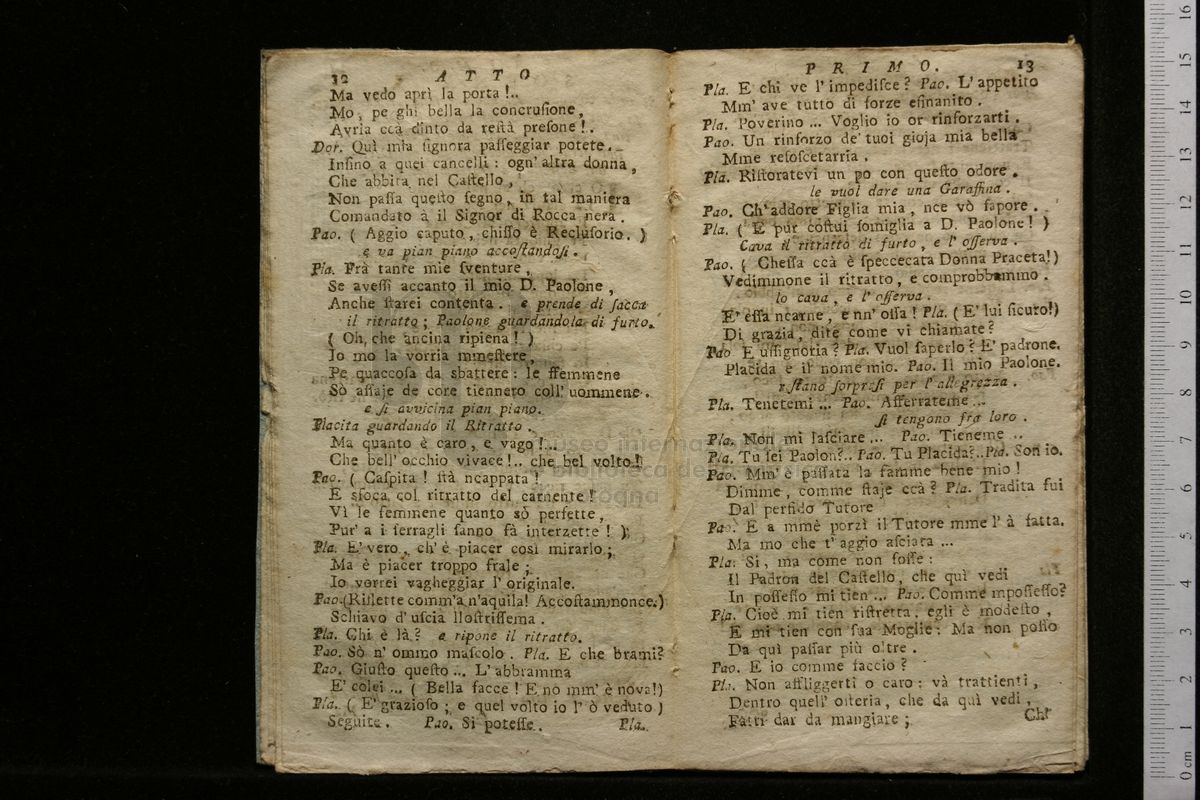 12 ATTO
Ma vedo aprì la porta!..
Mo, pe ghi bella la concrusione,
Avria ccà dinto da restà presone!.
Dor. Quì mia signora passeggiar potete.
Insino a quei cancelli: ogn'altra donna,
Che abbita nel Castello,
Non passa questo segno, in tal maniera
Comandato à il Signor di Rocca nera.
Pao. ( Aggio caputo, chisso è Reclusorio. )
e va pian piano accostandosi.
Pla. Frà tante mie sventure,
Se avessi accanto il mio D. Paolone,
Anche starei contenta. e prende di sacca
il ritratto; Paolone guardandola di furto.
( Oh, che ancina ripiena! )
Io mo la vorria mmestere,
Pe quaccosa da sbattere: le ffemmene
Sò assaje de core tiennero coll'uommene.
e si avvicina pian piano.
Placita guardando il Ritratto.
Ma quanto è caro, e vago!...
Che bell'occhio vivace!.. che bel volto!!
Pao. ( Caspita! stà ncappata!
E sfoca col ritratto del carnente!
Vì le femmene quanto sò perfette,
Pur'a i serragli sanno fà interzette! )
Pla. E'vero, ch'è piacer così mirarlo;
Ma è piacer troppo frale;
Io vorrei vagheggiar l'originale.
Pao. (Riflette comm'a n'aquila! Accostammonce.)
Schiavo d'uscia llostrissema.
Pla. Chi è là? e ripone il ritratto.
Pao. Sò n'ommo mascolo. Pla. E che brami?
Pao. Giusto questo... L'abbramma
E' colei... ( Bella facce! E no mm'è nova!)
Pla. ( E'grazioso; e quel volto io l'ò veduto )
Seguite. Pao. Si potesse. Pla.
PRIMO. 13
Pla. E chi ve l'impedisce? Pao. L'appetito
Mm'ave tutto di forze esinanito.
Pla. Poverino... Voglio io or rinforzarti.
Pao. Un rinforzo de'tuoi gioja mia bella
Mme resoscetarria.
Pla. Ristoratevi un po con questo odore.
le vuol dare una Garaffina.
Pao. Ch'addore Figlia mia, nce vò sapore.
Pla. ( E pur costui somiglia a D. Paolone! )
Cava il ritratto di furto, e l'osserva.
Pao. ( Chessa ccà è speccecata Donna Praceta!)
Vedimmone il ritratto, e comprobbammo.
lo cava, e l'osserva.
E'essa ncarne, e nn'ossa! Pla. ( E'lui sicuro!)
Di grazia, dite come vi chiamate?
Pao E ussignoria? Pla. Vuol saperlo? E'padrone.
Placida è il nome mio. Pao. Il mio Paolone.
restano sorpresi per l'allegrezza.
Pla. Tenetemi... Pao. Afferrateme...
si tengono fra loro.
Pla. Non mi lasciare... Pao. Tieneme..
Pla. Tu sei Paolon?.. Pao. Tu Placida?.. Pla. Son io.
Pao. Mm'è passata la famme bene mio!
Dimme, comme staje ccà? Pla. Tradita fui
Dal perfido Tutore
Pao. E a mmè porzì il Tutore mme l'à fatta.
Ma mo che t'aggio asciata...
Pla. Si, ma come non fosse:
Il Padron del Castello, che quì vedi
In possesso mi tien... Pao. Comme mpossesso?
Pla. Cioè mi tien ristretta, egli è modesto,
E mi tien con sua Moglie: Ma non posso
Da quì passar più oltre.
Pao. E io comme faccio?
Pla. Non affliggerti o caro: và trattienti,
Dentro quell'osteria, che da quì vedi,
Fatti dar da mangiare;
Ch'